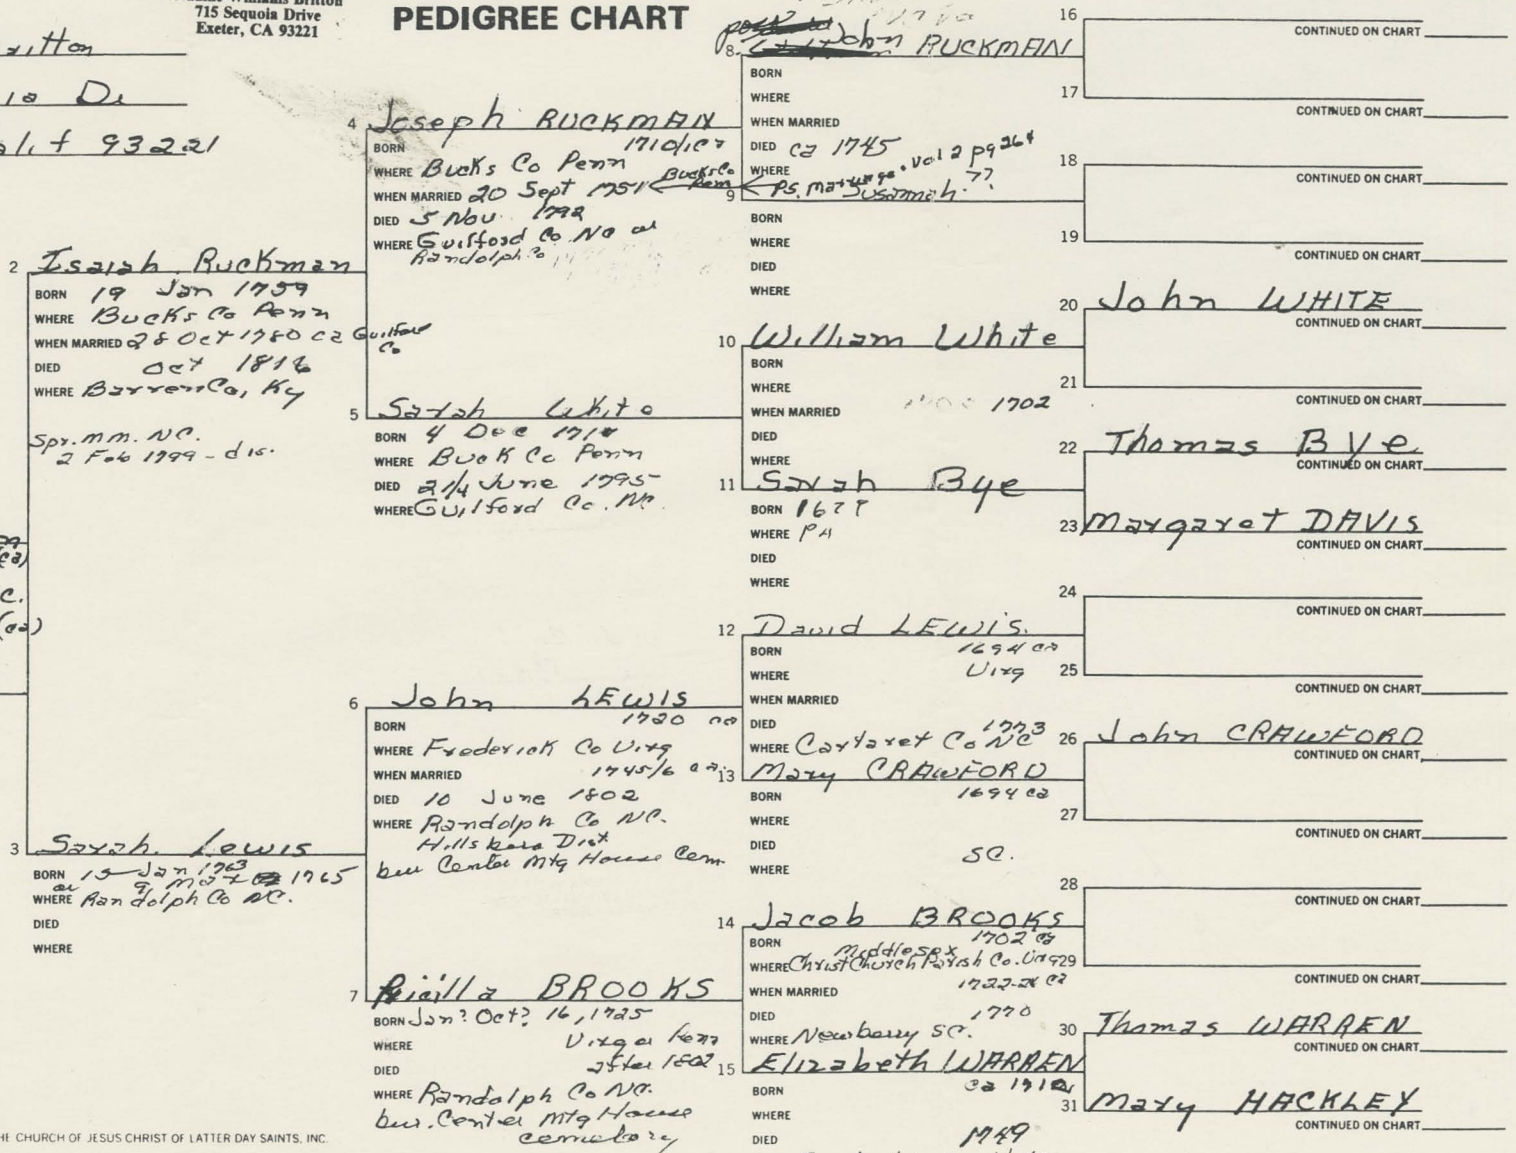 715 Sequoia Drive
Exeter, CA 93221
PEDIGREE CHART
93221
2 Isaiah Ruckman
BORN 19 Jan 1759
WHERE Bucks Co Penn
WHEN MARRIED 28 Oct 1780 ca Guilford Co
DIED Oct 1816
WHERE Barren Co, Ky
Spr. mm. NC.
2 Feb 1799 - dis.
3 Sarah Lewis
BORN 15 Jan 1763
or 9 Mar 1765
WHERE Randolph Co NC.
DIED
WHERE
4 Joseph RUCKMAN
BORN
WHERE Bucks Co Penn
WHEN MARRIED 20 Sept 1751 Bucks Co Penn
DIED 5 Nov. 1792
WHERE Guilford Co NC or
Randolph Co
5 Sarah White
BORN 4 Dec
WHERE Buck Co Penn
DIED June 1795
WHERE Guilford Co. NC.
6 John LEWIS
BORN 1720 ca
WHERE Frederick Co Virg
WHEN MARRIED 1745/6 ca.
DIED 10 June 1802
WHERE Randolph Co NC.
Hillsboro Dist
bur Center Mtg House Cem.
7 Pricilla BROOKS
BORN Jan? Oct? 16, 1725
WHERE Virg or
DIED after 1802
WHERE Randolph Co NC.
bur. Center Mtg House
cemetery
8. John RUCKMAN
BORN
WHERE
WHEN MARRIED
DIED ca 1745
WHERE
Vol 2 pg 264
9 Susannah ??
BORN
WHERE
DIED
WHERE
10 William White
BORN
WHERE
WHEN MARRIED 1702
DIED
WHERE
11 Sarah Bye
BORN
WHERE PA
DIED
WHERE
12 David LEWIS.
BORN 1694 ca
WHERE Virg
WHEN MARRIED
DIED 1773
WHERE Cartaret Co NC
13 Mary CRAWFORD
BORN 1694 ca
WHERE
DIED
WHERE SC.
14 Jacob BROOKS
BORN 1702 ca
Middlesex
WHERE Christ Church Parish Co. Virg
WHEN MARRIED
DIED 1770
WHERE Newberry SC.
15 Elizabeth WARREN
BORN
WHERE
DIED 1749
16
CONTINUED ON CHART
17
CONTINUED ON CHART
18
CONTINUED ON CHART
19
CONTINUED ON CHART
20 John WHITE
CONTINUED ON CHART
21
CONTINUED ON CHART
22 Thomas Bye
CONTINUED ON CHART
23 Margaret DAVIS
CONTINUED ON CHART
24
CONTINUED ON CHART
25
CONTINUED ON CHART
26 John CRAWFORD
CONTINUED ON CHART
27
CONTINUED ON CHART
28
CONTINUED ON CHART
29
CONTINUED ON CHART
30 Thomas WARREN
CONTINUED ON CHART
31 Mary HACKLEY
CONTINUED ON CHART
HE CHURCH OF JESUS CHRIST OF LATTER DAY SAINTS, INC.